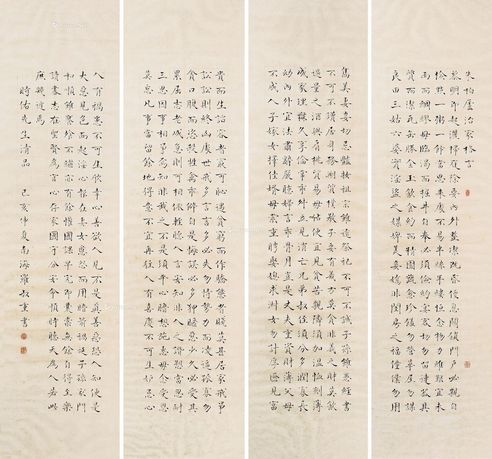 朱柏廬治家格言
黎明即起灑掃庭除要內外整潔既昏便息關鎖門戶必親自
檢點一粥一飯當思來處不易半絲半縷恆念物力維艱宜未
雨而綢繆毋臨渴而掘井自奉必須儉約宴客切勿留連器具
質而潔瓦缶勝金玉飲食約而精園蔬愈珍饈勿營華屋勿謀
良田三姑六婆實淫盜之媒婢美妾嬌非閨房之福僮僕勿用
雋美妻妾切忌豔妝祖宗雖遠祭祀不可不誠子孫雖愚經書
不可不讀居身務期質樸教子要有義方莫貪意外之財莫飲
過量之酒與肩挑貿易毋佔便宜見貧苦親鄰須加溫恤刻薄
成家理無久享倫常乖舛立見消亡兄弟叔侄須分多潤寡長
幼內外宜法肅辭嚴聽婦言乖骨肉豈是丈夫重資財薄父母
不成人子嫁女擇佳婿毋索重聘娶媳求淑女勿計厚奩見富
貴而生諂容者最可恥遇貧窮而作驕態者賤莫甚居家戒爭
訟訟則終凶處世戒多言言多必失勿恃勢力而凌逼孤寡勿
貪口腹而恣殺牲禽乖僻自是悔誤必多狎暱惡少久必受其
累屈志老成急則可相依輕聽人言安知非人之譖愬當忍耐
三思因事相爭焉知非我之不是須平心暗想施惠毋念受恩
莫忘凡事當留餘地得意不宜再往人有喜慶不可生妒忌心
人有禍患不可生欣幸心善欲人見不是真善惡恐人知便是
大惡見色而起淫心報在妻女匿怨而用暗箭禍延子孫家門
和順雖饔飧不繼亦有餘歡國課早完即囊橐無餘自得至樂
讀書志在聖賢為官心存君國守分安命順時聽天為人若此
庶幾近焉
時佑先生清品 己亥仲夏南海羅叔重書